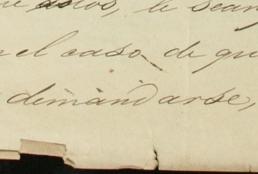 estos, le sean
el caso de que
demandarse,